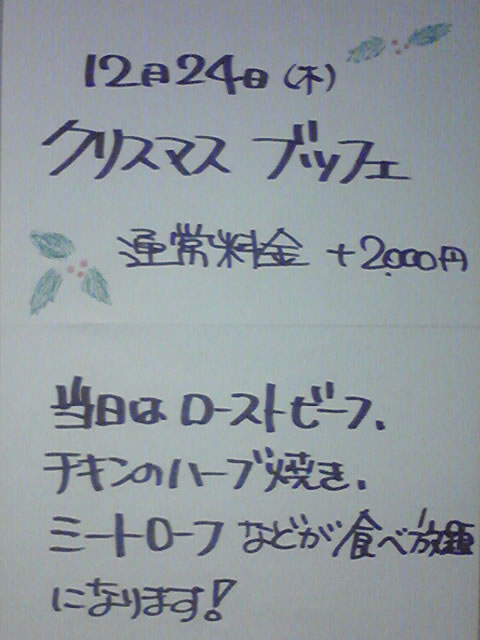 12月24日(木)
クリスマス ブッフェ
通常料金 +2,000円
当日は ローストビーフ、
チキンのハーブ焼き、
ミートローフ などが 食べ放題
になります!